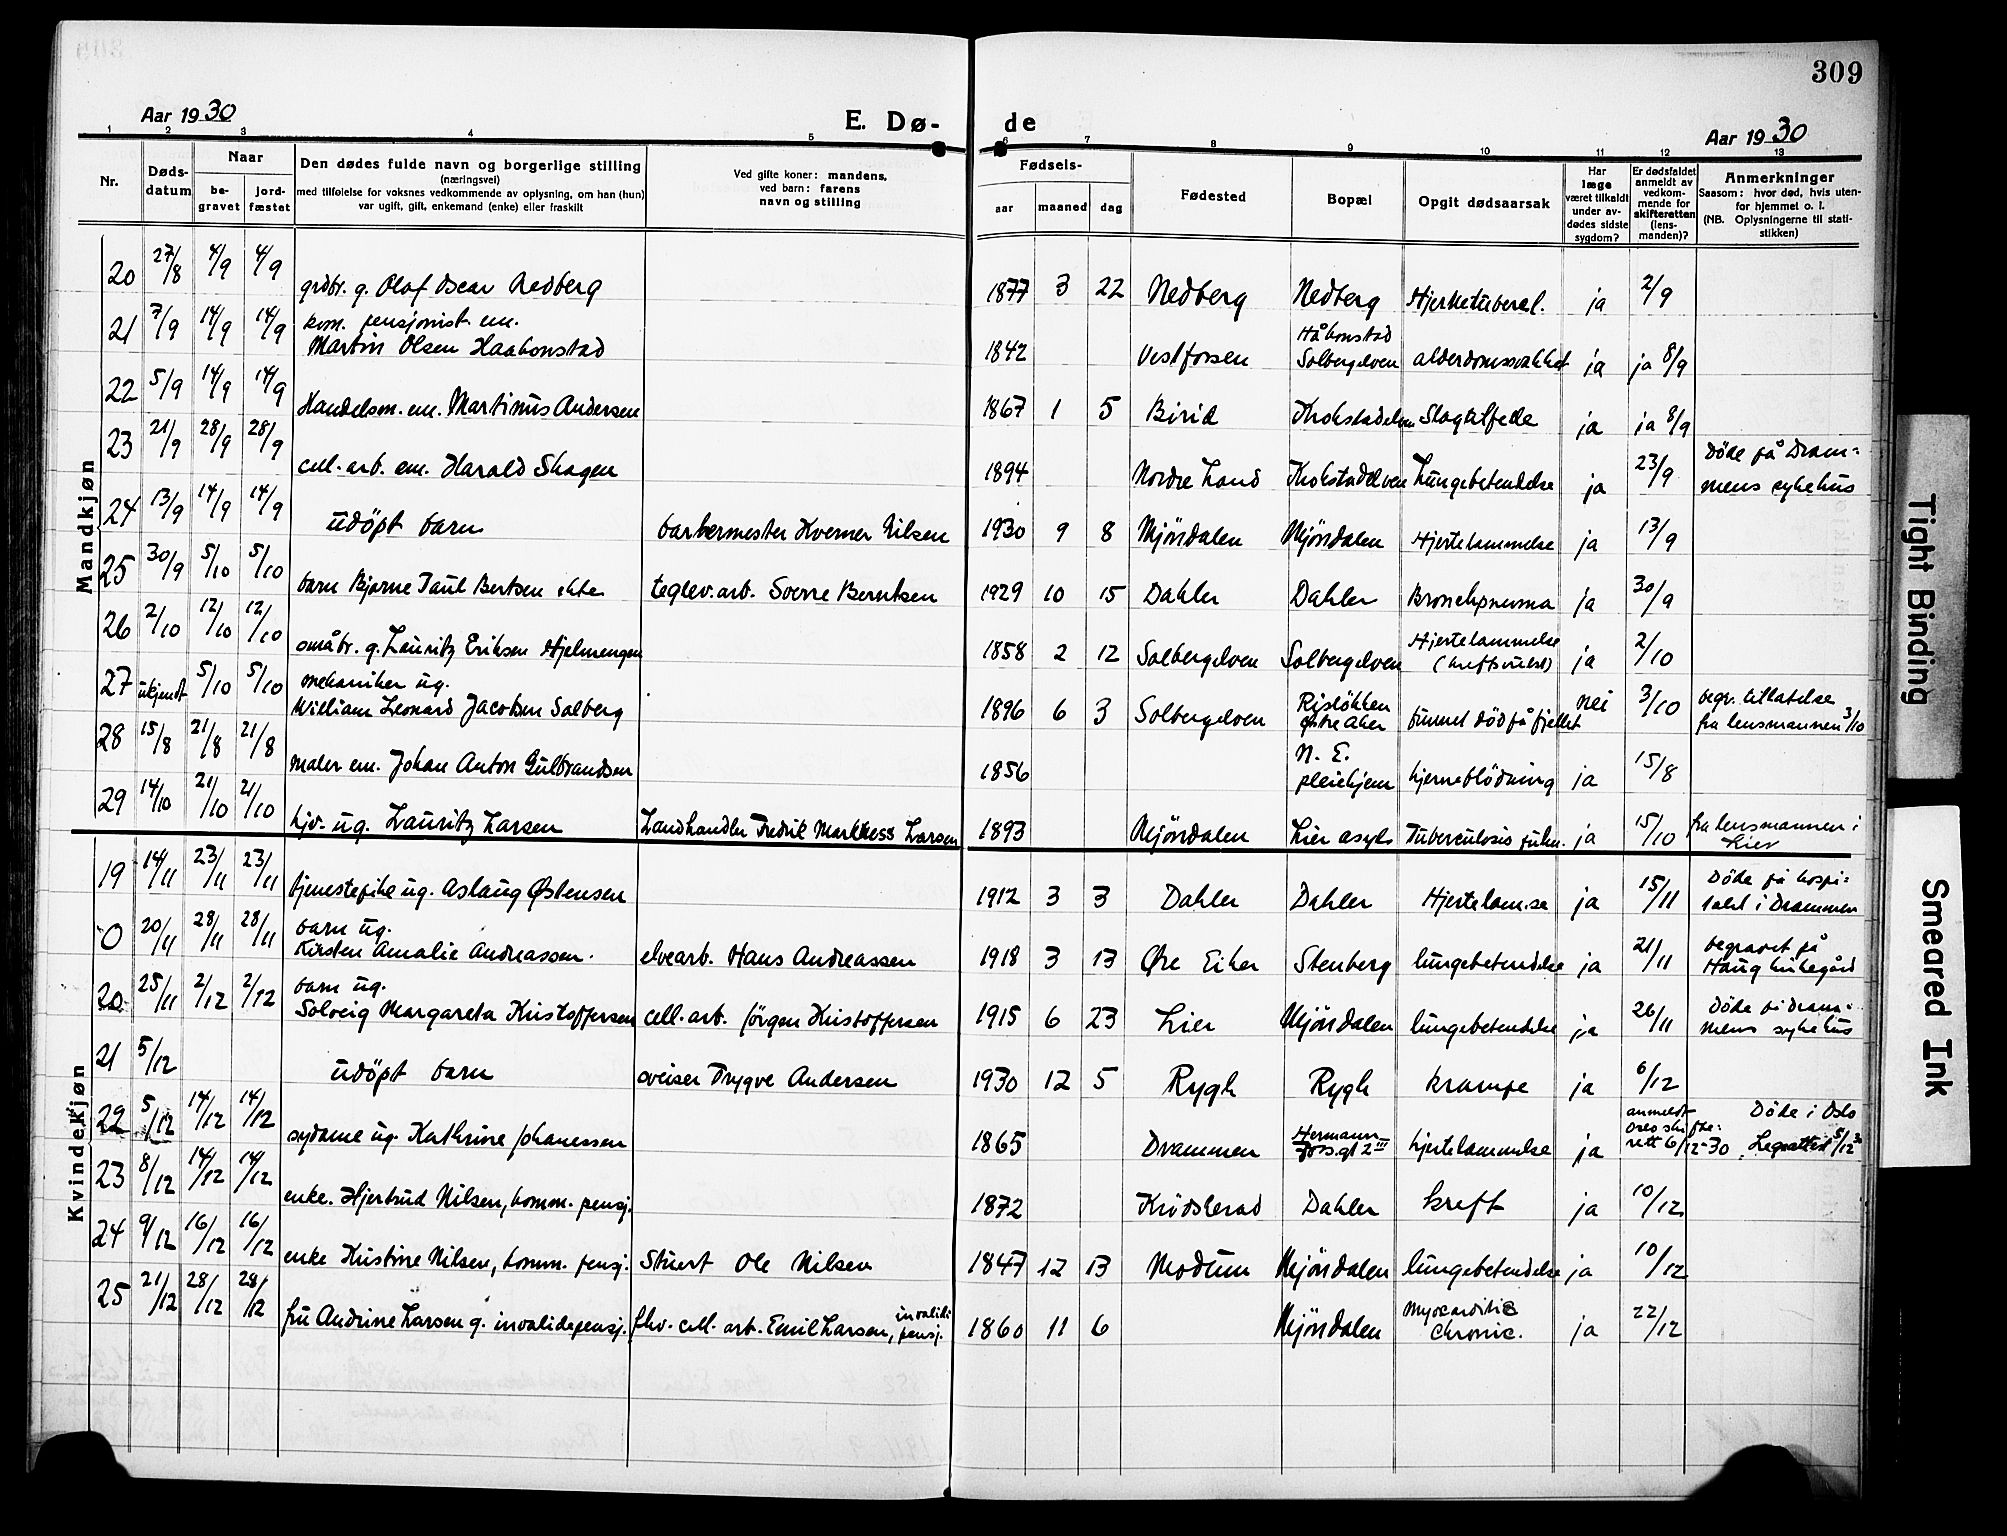 309
Aar 1930 E. Dø- de Aar 1930
1 2 3 4 5 6 7 8 9 10 11 12 13
Nr. Døds-datum Naar be-gravet jord-fæstet Den dødes fulde navn og borgerlige stilling (næringsvei) med tilføielse for voksnes vedkommende av oplysning, om han (hun) var ugift, gift, enkemand (enke) eller fraskilt Ved gifte koner: mandens, ved barn: farens navn og stilling Fødsels- aar maaned dag Fødested Bopæl Opgit dødsaarsak Har læge været tilkaldt under av-dødes sidste sygdom? Er dødsfaldet anmeldt av vedkom-mende for skifteretten (lens-manden)? Anmerkninger Saasom: hvor død, hvis uten-for hjemmet o. l. (NB. Oplysningerne til stati-stikken)
Mandkjøn
20 27/8 4/9 4/9 grdbr. g. Olaf Oscar Nedberg 1877 3 22 Nedberg Nedberg Hjernetuberel. ja 2/9
21 7/9 14/9 14/9 kom. pensjonist. em. Martin Olsen Haakonstad 1842 Vestfossen Håkonstad Solbergelven alderdomssvakhet ja ja 8/9
22 5/9 14/9 14/9 Handelsm. em. Martinus Andersen 1867 1 5 Birid Krokstadelven Slagtilfelle ja ja 8/9
23 21/9 28/9 28/9 cell. arb. em. Harald Skagen 1894 Nordre Land Krokstadelven Lungebetendelse ja 23/9 Døde på Dram=mens sykehus
24 13/9 14/9 14/9 udöpt barn barbermester Kverner Nilsen 1930 9 8 Mjöndalen Mjöndalen Hjertelammelse ja 13/9
25 30/9 5/10 5/10 barn Bjarne Paul Bertsen ekte teglev. arb. Sverre Berntsen 1929 10 15 Dahler Dahler Bronchpneuma ja 30/9
26 2/10 12/10 12/10 småbr. g. Lauritz Eriksen Hjelmengen 1858 2 12 Solbergelven Solbergelven Hjertelammelse (kreftsvulst) ja 2/10
27 ukjendt 5/10 5/10 mekaniker ug. William Leonard Jacobsen Solberg 1896 6 3 Solbergelven Risløkken østre Aker funnet död på fjellet nei 3/10 begr. tillatelse fra lensmannen 3/10
28 15/8 21/8 21/8 maler em. Johan Anton Gulbrandsen 1856 N. E. pleiehjem hjerneblödning ja 15/8
29 14/10 21/10 21/10 hjv. ug. Lauritz Larsen Landhandler Fredrik Markkess Larsen 1893 Mjöndalen Lier asyl Tuberculosis pulm. ja 15/10 fra lensmannen i Lier
Kvindekjøn
19 14/11 23/11 23/11 tjenestepike ug. Aslaug Østensen 1912 3 3 Dahler Dahler Hjertelam.se ja 15/11 Døde på hospi=talet i Drammen
0 20/11 28/11 28/11 barn ug. Kirsten Amalie Andreassen. elvearb. Hans Andreassen 1918 3 13 Øre Eiker Stenberg lungebetendelse ja 21/11 begravet på Haug kirkegård
20 25/11 2/12 2/12 barn ug. Solveig Margareta Kristoffersen cell. arb. Jörgen Kristoffersen 1915 6 23 Lier Mjöndalen lungebetendelse ja 26/11 Døde på Dram=mens sykehus
21 5/12 udöpt barn sveiser Trygve Andersen 1930 12 5 Rygh Rygh krampe ja 6/12
22 5/12 14/12 14/12 sydame ug. Kathrine Johanessen 1865 Drammen Hermann Fossgt 2 III hjertelammelse ja anmeldt Oslo skifte=rett 6/12-30 Døde i Oslo Legatted 5/12 30
23 8/12 14/12 14/12 enke. Hjertrud Nilsen, komm. pensj. 1872 Krödsherad Dahler kreft ja 10/12
24 9/12 16/12 16/12 enke Kristine Nilsen, komm. pensj. Stuert Ole Nilsen 1847 12 13 Modum Mjöndalen lungebetendelse ja 10/12
25 21/12 28/12 28/12 fru Andrine Larsen g. invalidepensj. fhv. cell. arb. Emil Larsen, invalidepensj. 1860 11 6 Mjöndalen Myocarditis Chronic. ja 22/12
Tight Binding
Smeared Ink